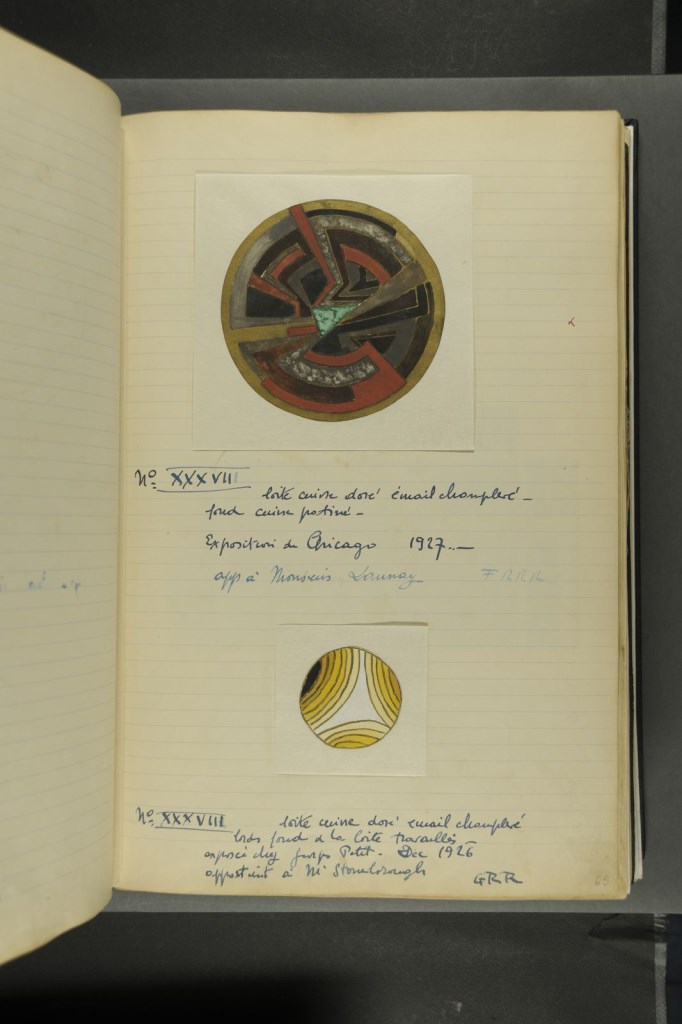 No XXXVII
boîte cuivre doré émail champlevé –
fond cuivre patiné –
Exposition de Chicago 1927. –
app à Monsieur Launay FRRR
No XXXVIII boîte cuivre doré émail champlevé
fond de la boîte travaillés –
exposée chez Georges Petit – Dec 1926
appartient à Mr Stoneborough GRR
63